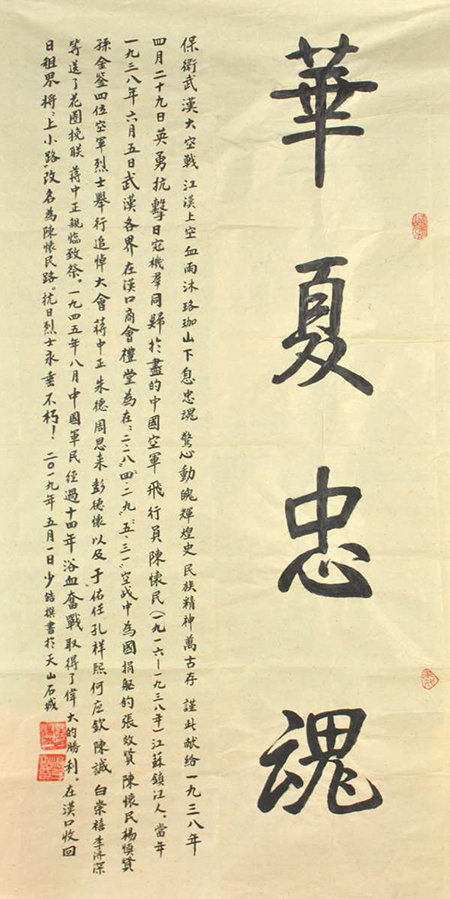 華夏忠魂
保衛武漢大空戰 江漢上空血雨沐 珞珈山下息忠魂 驚心動魄輝煌史 民族精神萬古存 謹此献给一九三八年
四月二十九日英勇抗擊日寇機羣同歸於盡的中國空軍飛行員陳懷民(一九一六—一九三八年)江蘇鎮江人,當年
一九三八年六月五日武漢各界在漢口商會禮堂為在“二·二八”“四·二九”“五·三一”空战中為國捐軀的張效賢陳懷民楊慎賢
孫金鉴四位空軍烈士舉行追悼大會蔣中正朱德周恩来彭德懷以及于佑任孔祥熙何应欽陳誠白崇禧李济深
等送了花圈挽联蔣中正親临致祭。一九四五年八月中國軍民経過十四年浴血奮戰取得了偉大的勝利。在漢口收回
日租界將“上小路”改名為陳懷民路。抗日烈士永垂不朽!二〇一九年五月一日少 撰書於天山石城